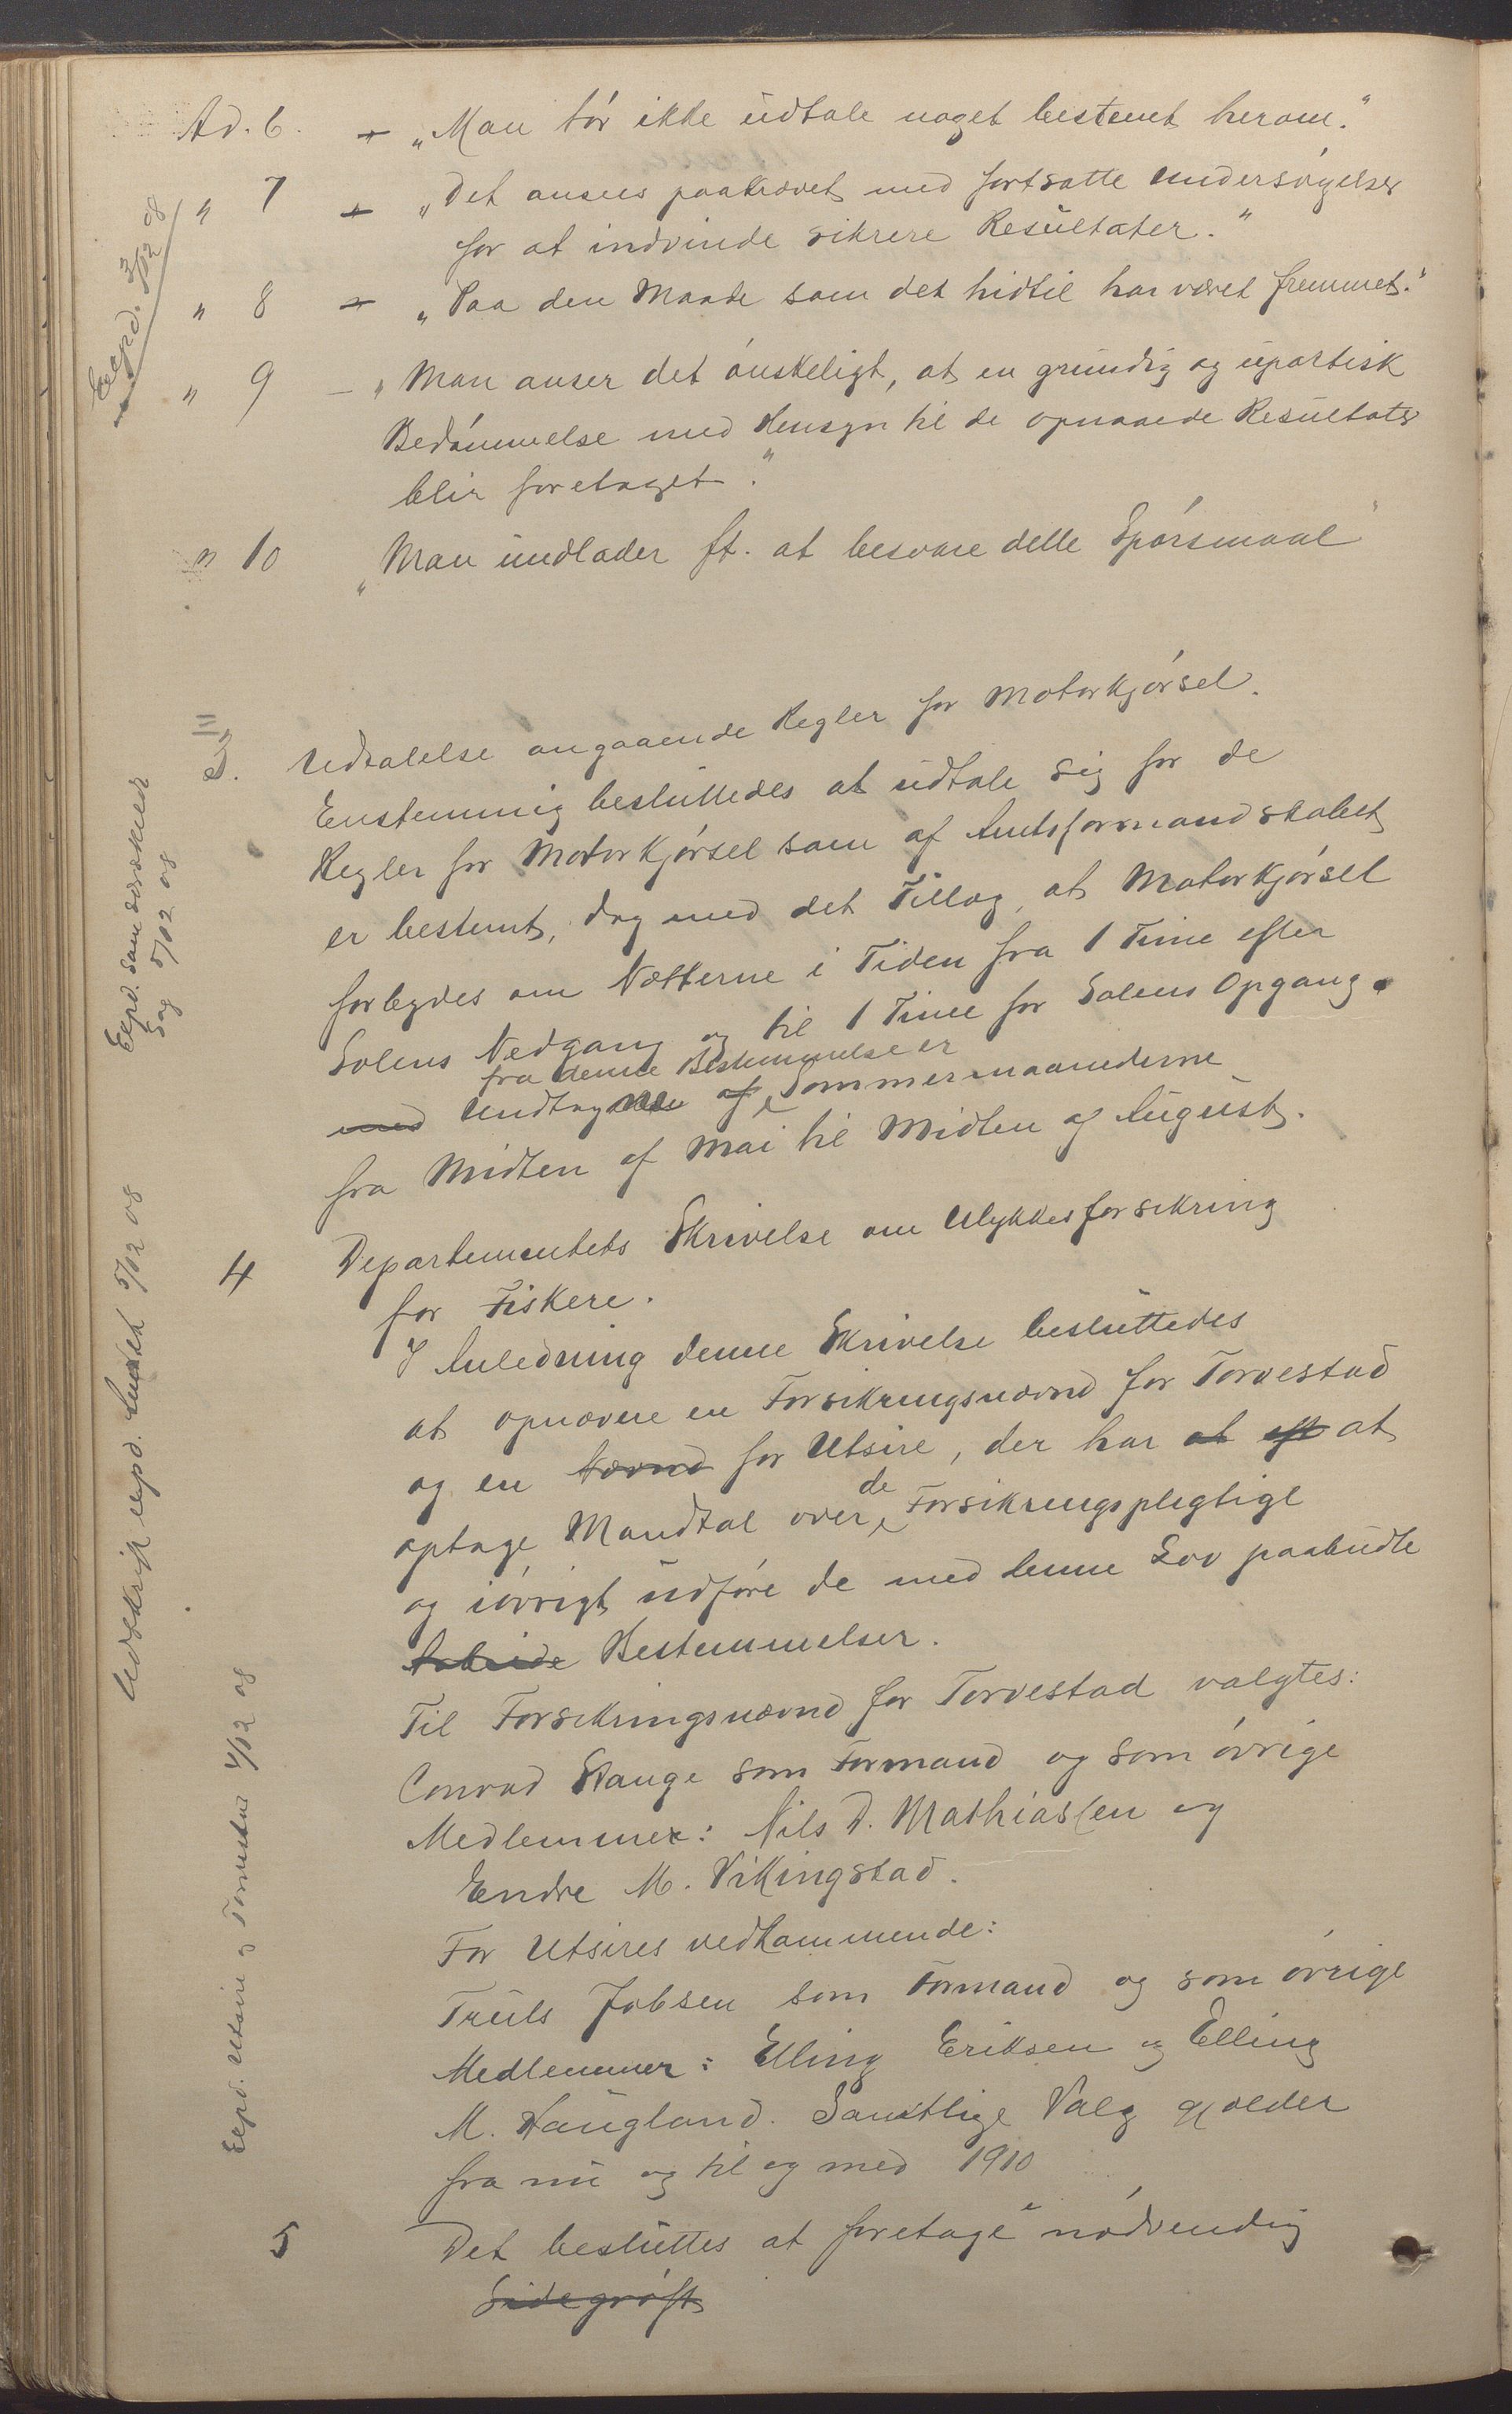 Ad. 6. + „Man tør ikke udtale noget bestemt herom."
„ 7 + „Det ansees paakrævet med fortsatte Undersøgelser
for at indvinde sikrere Resultater."
„ 8 + „Paa den Maade som det hidtil har været fremmet."
„ 9 – „Man anser det ønskeligt, at en grundig og upartisk
Bedømmelse med Hensyn til de opnaaede Resultater
blir foretaget."
„ 10 „Man undlader ft. at besvare dette Spørsmaal"
Expd. 3/12 08
3. Udtalelse angaaende Regler for Motorkjørsel.
Enstemmig besluttedes at udtale sig for de
Regler for Motorkjørsel som af Amtsformandskabet
er bestemt, dog med det Tillæg, at Motorkjørsel
forbydes om Nætterne i Tiden fra 1 Time efter
Solens Nedgang og til 1 Time før Solens Opgang.
fra denne Bestemmelse er
med Undtagen af Sommermaanederne
fra Midten af Mai til Midten af August.
Expd. som særskilt
Sag 5/12 08
4 Departementets Skrivelse om Ulykkesforsikring
for Fiskere.
I Anledning denne Skrivelse besluttedes
at opnævne en Forsikringsnævnd for Torvestad
og en Nævnd for Utsire, der har at eft at
optage Mandtal over de Forsikringspligtige
og iøvrigt udføre de med denne Lov paabudte
Arbeide Bestemmelser.
Til Forsikringsnævnd for Torvestad valgtes:
Conrad Stange som Formand og som øvrige
Medlemmer: Nils D. Mathiassen og
Endre M. Vikingstad.
For Utsires vedkommende:
Truls Jobsen som Formand og som øvrige
Medlemmer: Elling Eriksen og Elling
M. Haugland. Samtlige Valg gjælder
fra nu og til og med 1910
Udskrift expd. Amtet 5/12 08
Expd. Utsire og Torvestad 4/12 08
5 Det besluttes at foretage nødvendig
Sidegrøft